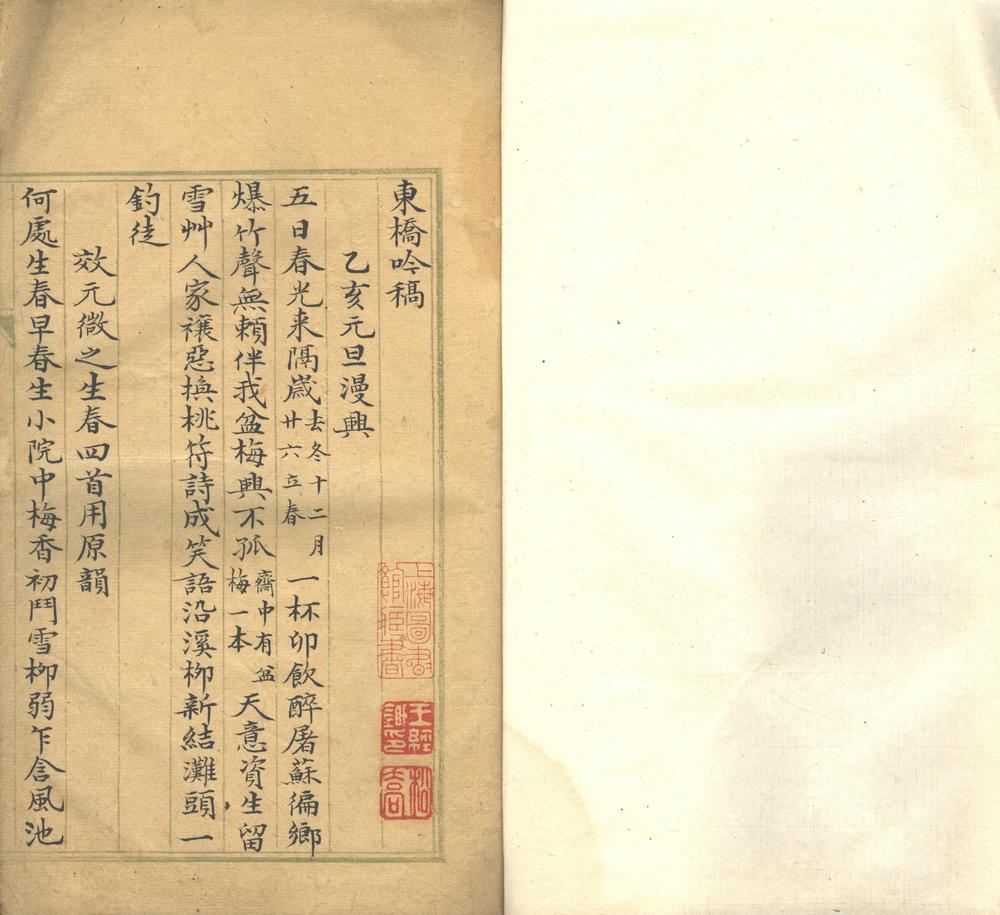 東橋吟稿
乙亥元旦漫興
五日春光来隔歲去冬十二月廿六立春一杯卯飲醉屠蘇偏鄉
爆竹聲無頼伴我盆梅興不孤齋中有盆梅一本天意資生留
雪艸人家禳惡換桃符詩成笑語沿溪柳新結灘頭一
釣徒
效元微之生春四首用原韻
何處生春早春生小院中梅香初鬥雪柳弱乍含風池
上海圖書館藏書